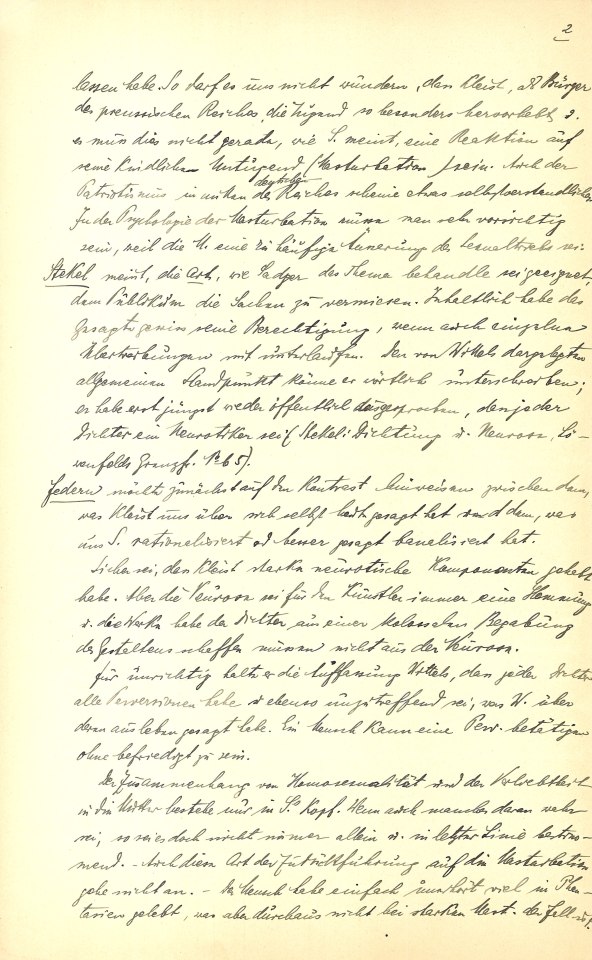 2
lassen habe. So darf es uns nicht wundern, dass Kleist, als Bürger
des preussischen Reiches, die Tugend so besonders hervorhebt u.
es muss dies nicht gerade, wie S. meint, eine Reaktion auf
seine kindlichen Untugend (Masturbation) sein. Auch der
Patriotismus in den deutschen Reiches scheine etwas selbstverständliches
In der Psychologie der Masturbation müsse man sehr vorsichtig
sein, weil die M. eine zu häufige Äusserung des Sexualtriebs sei.
Stekel meint, die Art, wie Sadger das Thema behandle sei geeignet,
dem Publikum die Sachen zu vermiesen. Inhaltlich habe das
Gesagte gewiss seine Berechtigung, wenn auch einzelne
Übertreibungen mit unterlaufen. Den von Wittels dargelegten
allgemeinen Standpunkt könne er wörtlich unterschreiben;
er habe erst jüngst wieder öffentlich ausgesprochen, dass jeder
Dichter ein Neurotiker sei (Stekel: Dichtung u. Neurose, Lö-
wenfelds Grenzfr. No 65).
Federn möchte zunächst auf den Kontrast hinweisen zwischen dem,
was Kleist uns über sich selbst gesagt hat und dem, was
uns S. rationalisiert od besser gesagt banalisiert hat.
Sicher sei, dass Kleist starke neurotische Komponenten gehabt
habe. Aber die Neurose sei für den Künstler immer eine Hemmung
u. die Werke habe der Dichter aus einer kolossalen Begabung
des Gestaltens schaffen müssen nicht aus der Neurose.
Für unrichtig halte er die Auffassung Wittels, dass jeder Dichter
alle Perversionen habe u ebenso unzutreffend sei, was W. über
deren ausleben gesagt habe. Ein Mensch kann eine Perv. betätigen
ohne befriedigt zu sein.
Der Zusammenhang von Homosexualität und der Verliebtheit
in die Mutter bestehe nur in S's Kopf. Wenn auch manches daran wahr
sei, so sei es doch nicht immer allein u. in letzter Linie bestim-
mend. – Auch diese Art der Zurückführung auf die Masturbation
gehe nicht an. – Der Mensch habe einfach unerhört viel in Phan-
tasien gelebt, was aber durchaus nicht bei starken Mast. der Fall